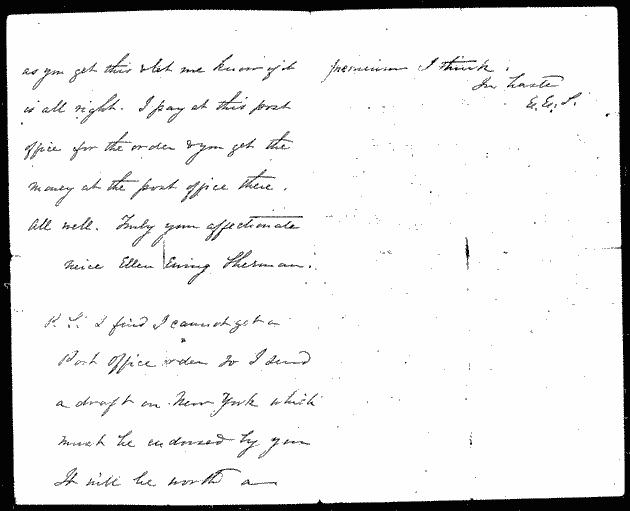 as you get this & let me know if it
is all right. I pay at this post
office for the order & you get the
money at the post office there.
All well. Truly your affectionate
neice Ellen Ewing Sherman.
P.S. I find I cannot get a
Post Office order so I send
a draft on New York which
must be endorsed by you
It will be worth a
premium I think.
In haste
E. E. S.